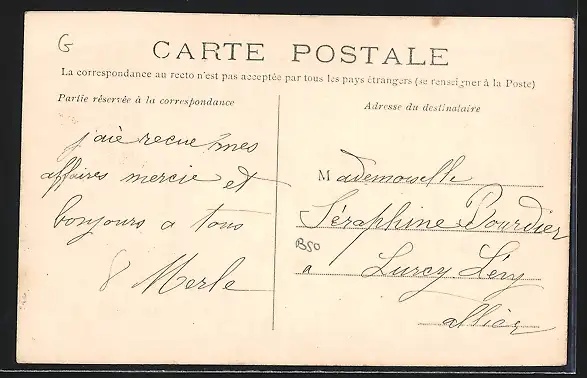 G
CARTE POSTALE
La correspondance au recto n'est pas acceptée par tous les pays étrangers (se renseigner à la Poste)
Partie réservée à la correspondance
j'aie recue mes
affaires mercie et
bonjours a tous
Merle
Adresse du destinataire
Mademoiselle
Seraphine Bourdier
B50
a Lurcy Lévy
allier